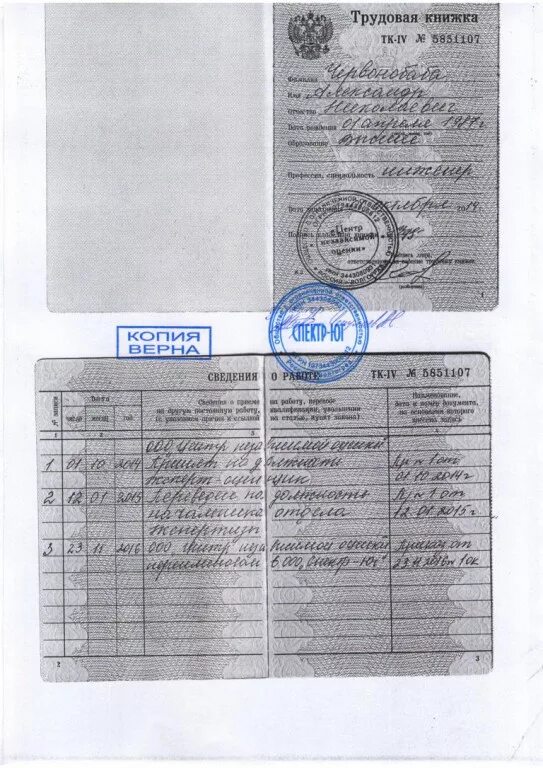 Трудовая книжка
ТК-IV № 5851107
Фамилия Червонобаба
Имя Александр
Отчество Николаевич
Дата рождения 01 апреля 1987 г
Образование высшее
Профессия, специальность инженер
октября 2014
«Центр
независимой
оценки»
КОПИЯ
ВЕРНА
СПЕКТР-ЮГ
СВЕДЕНИЯ О РАБОТЕ ТК-IV № 5851107
№ записи Дата Сведения о приеме на работу, переводе Наименование,
на другую постоянную работу, квалификации, увольнении дата и номер документа,
(с указанием причин и ссылкой на статью, пункт закона) на основании которого
число месяц год внесена запись
1 2 3 4
ООО Центр независимой оценки
1 01 10 2014 Принят на должность Пр №1 от
эксперт-оценщик 01.10.2014г
2 12 01 2015 Переведен на должность Пр №1 от
начальника отдела 12.01.2015г
экспертизы
3 23 11 2016 ООО Центр независимой оценки Приказ от
переименован в ООО „Спектр-Юг"
2 3